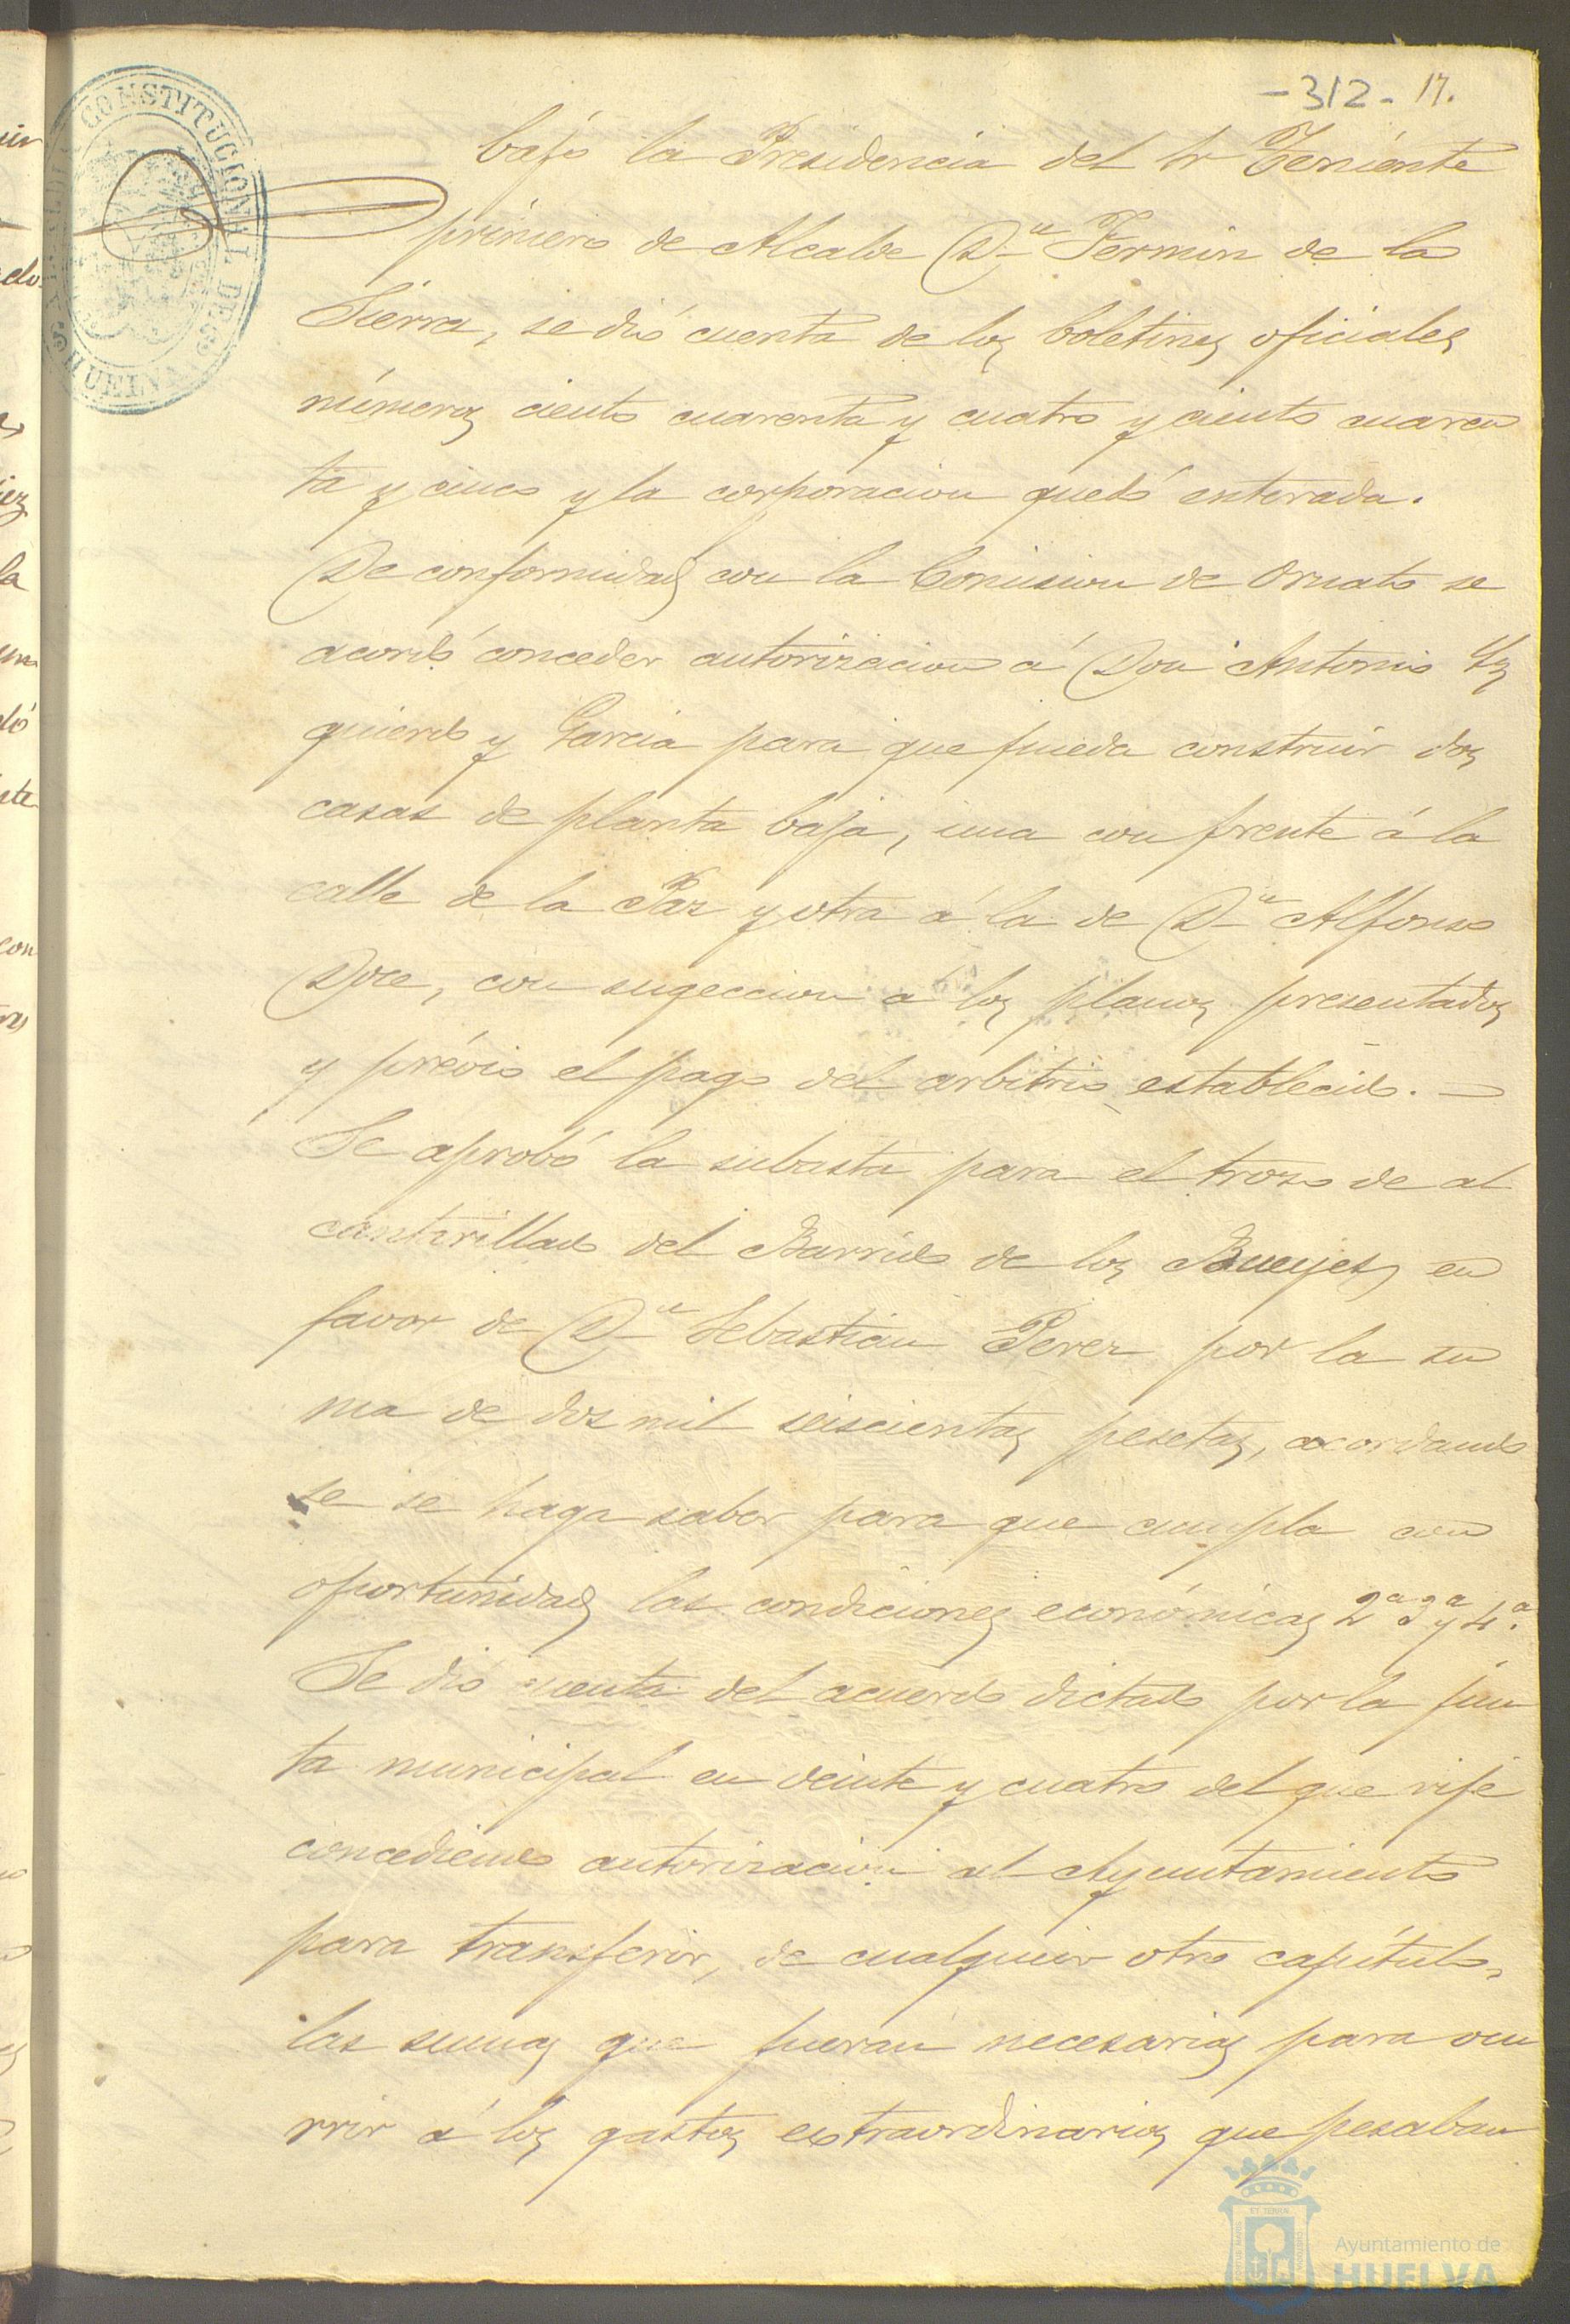 - 312 - 17.
CONSTITUCIONAL DE
HUELVA
bajo la Presidencia del Sr Teniente
primero de Alcalde Dn Fermin de la
Sierra, se dió cuenta de los boletines oficiales
números ciento cuarenta y cuatro y ciento cuaren
ta y cinco y la corporacion quedó enterada.
De conformidad con la Comision de Ornato se
acordó conceder autorizacion á Don Antonio Yz
quierdo y Garcia para que pueda construir dos
casas de planta baja, una con frente á la
calle de la Paz y otra á la de Dn Alfonso
Doce, con sugeccion á los planos presentados
y prévio el pago del arbitrio establecido. —
Se aprobó la subasta para el trozo de al
cantarillado del Barrio de los en
favor de Dn Sebastian Perez por la su
ma de dos mil seiscientas pesetas, acordando
se se haga saber para que cumpla con
oportunidad las condiciones económicas 2ª 3ª y 4ª.
Se dió cuenta del acuerdo dictado por la jun
ta municipal en veinte y cuatro del que rije
concediendo autorizacion al Ayuntamiento
para transferir, de cualquier otro capítulo,
las sumas que fueran necesarias para ocu
rrir á los gastos extraordinarios que pesaban
Ayuntamiento de
HUELVA